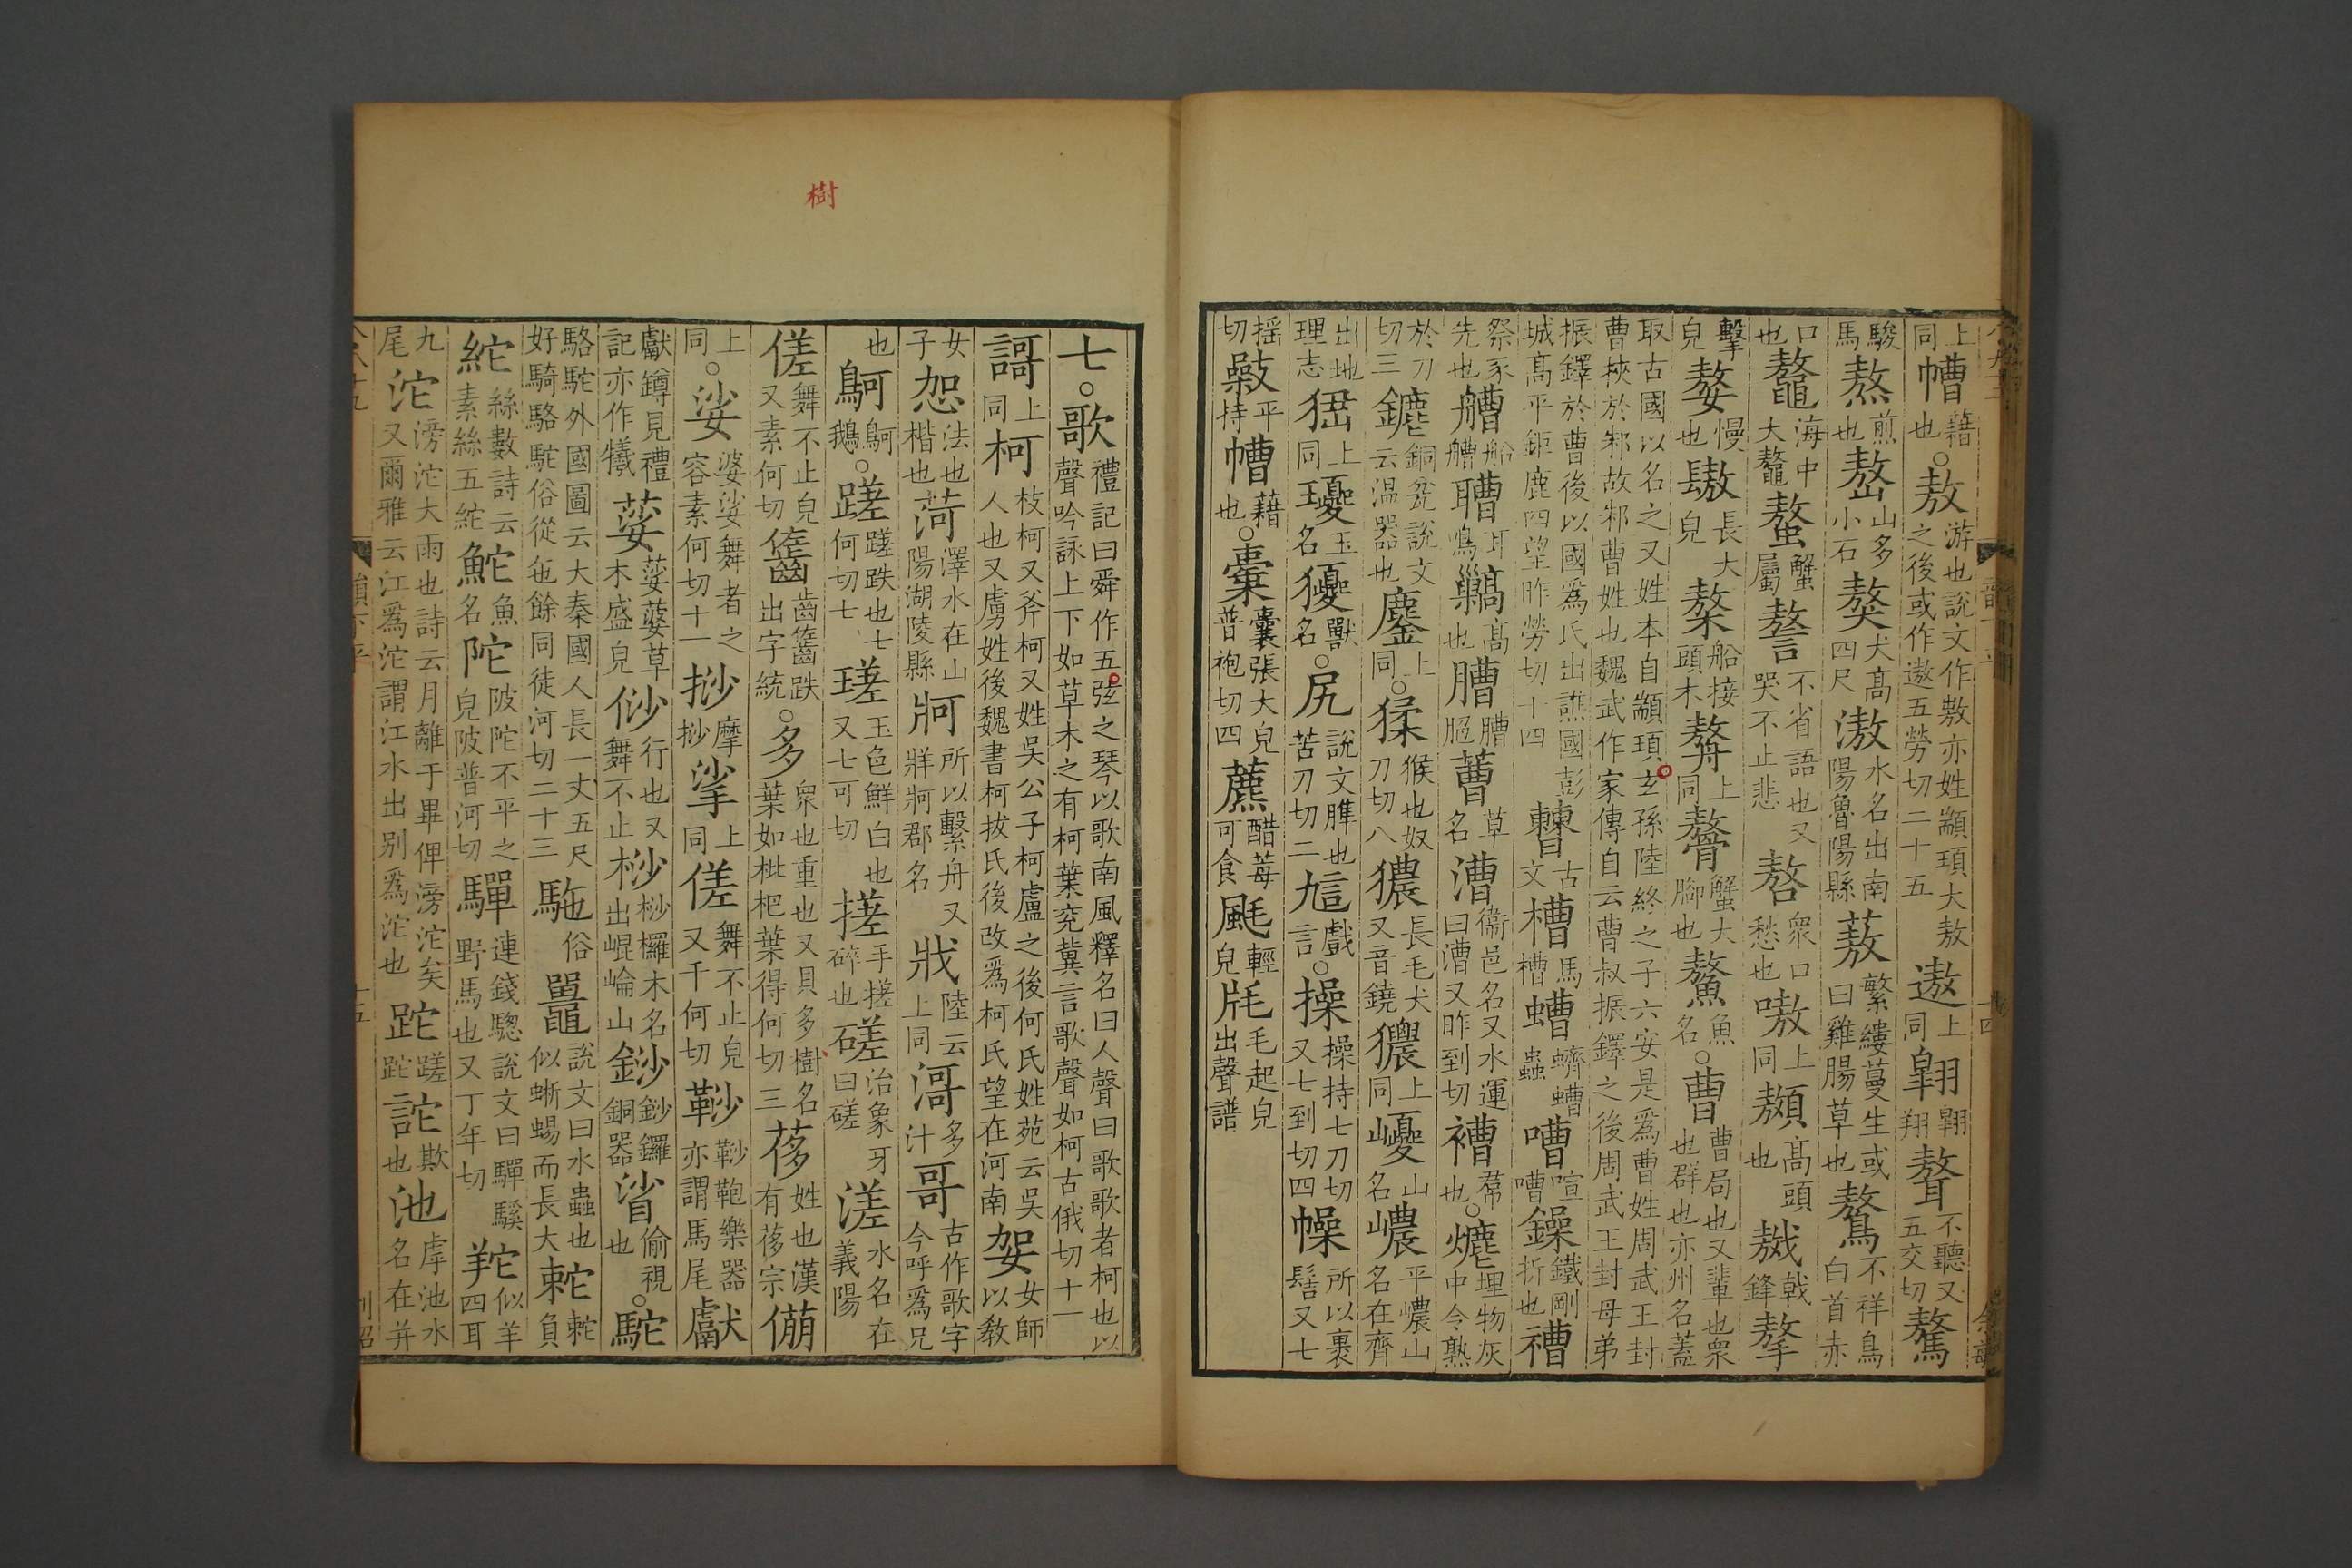 上同㡟藉也○敖游也說文作敖亦姓顓頊大敖之後或作遨五勞切二十五遨上同翱翱翔聱不聽又五交切驁
駿馬熬煎也嶅山多小石獒犬高四尺滶水名出南陽魯陽縣蔜繁縷蔓生或曰雞腸草也鷔不祥鳥白首赤
口也鼇海中大鼇螯蟹屬謷不省語也又哭不止悲嗸衆口愁也嗷上同䫨高頭也𢧴戟鋒摮
擊皃嫯慢也䦋長大皃㟼船接頭木䑃上同䐿蟹大腳也䲅魚名○曹曹局也又輩也衆也群也亦州名蓋
取古國以名之又姓本自顓頊玄孫陸終之子六安是爲曹姓周武王封曹挾於邾故邾曹姓也魏武作家傳自云曹叔振鐸之後周武王封母弟
振鐸於曹後以國爲氏出譙國彭城高平鉅鹿四望昨勞切十四㯥古文槽馬槽螬蠐螬蟲嘈喧嘈鏪鐵剛折也褿
祭豕先也艚船艚䏆耳鳴䲃高也膅膅脃蓸草名漕衞邑名又水運曰漕又昨到切褿帬也○爊埋物灰中令熟
於刀切三鏕銅瓫說文云温器也鏖上同○猱猴也奴刀切八獶長毛犬又音鐃獿上同巎山名峱平峱山名在齊
出地理志峱上同瓇玉名獿獸名○尻說文䐁也苦刀切二䛋戲言○操操持七刀切又七到切四幧所以裹髻又七
搖切㲈平持㡟藉也○橐囊張大皃普袍切四藨醋苺可食䫸輕皃㲏毛起皃出聲譜
七○歌禮記曰舜作五弦之琴以歌南風釋名曰人聲曰歌歌者柯也以聲吟詠上下如草木之有柯葉兖冀言歌聲如柯古俄切十一
謌上同柯枝柯又斧柯又姓吳公子柯盧之後何氏姓苑云吳人也又虜姓後魏書柯拔氏後改爲柯氏望在河南妿女師以教
女子㤎法也楷也菏澤水在山陽湖陵縣牁所以繫舟又牂牁郡名戕陸云上同渮多汁哥古作歌字今呼爲兄
也鴚鴚鵝○蹉蹉跌也七何切七瑳玉色鮮白也又七可切搓手搓碎也磋治象牙曰磋溠水名在義陽
傞舞不止皃又素何切齹齒齹跌出字統○多衆也重也又貝多樹名葉如枇杷葉得何切三䔟姓也漢有䔟宗𠐊
上同○娑婆娑舞者之容素何切十一挱摩挱挲上同傞舞不止皃又千何切䩖䩖鞄樂器亦謂馬尾獻
獻鐏見禮記亦作犧蔢蔢蔢草木盛皃㑡行也又舞不止桫桫欏木名出崐崘山鈔鈔鑼銅器䐤偷視也○駝
駱駝外國圖云大秦國人長一丈五尺好騎駱駝俗從㐌餘同徒河切二十三駞俗鼉說文曰水蟲也似蜥蜴而長大䭾䭾負
紽絲數詩云素絲五紽鮀魚名陀陂陀不平之皃陂普河切驒連錢驄說文曰驒騱野馬也又丁年切羍似羊四耳
九尾沱滂沱大雨也詩云月離于畢俾滂沱矣又爾雅云江爲沱謂江水出別爲沱也跎蹉跎詑欺也池虖池水名在并
樹